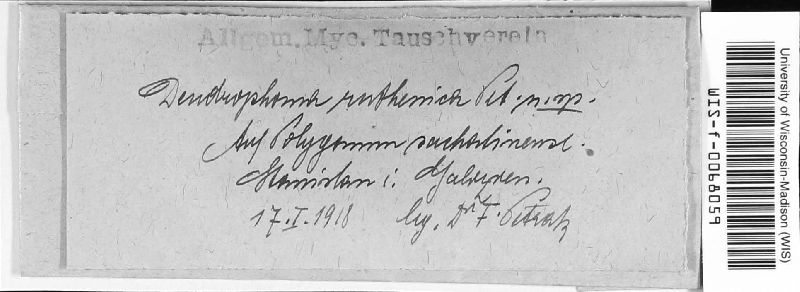 Allgem. Myc. Tauschverein
Dendrophoma ruthenica Pet. n. sp.
Auf Polygonum sachalinense.
Stanislau i. Galizien.
17.I.1918 leg. Dr F. Petrak
University of Wisconsin-Madison (WIS)
WIS-f-0068059